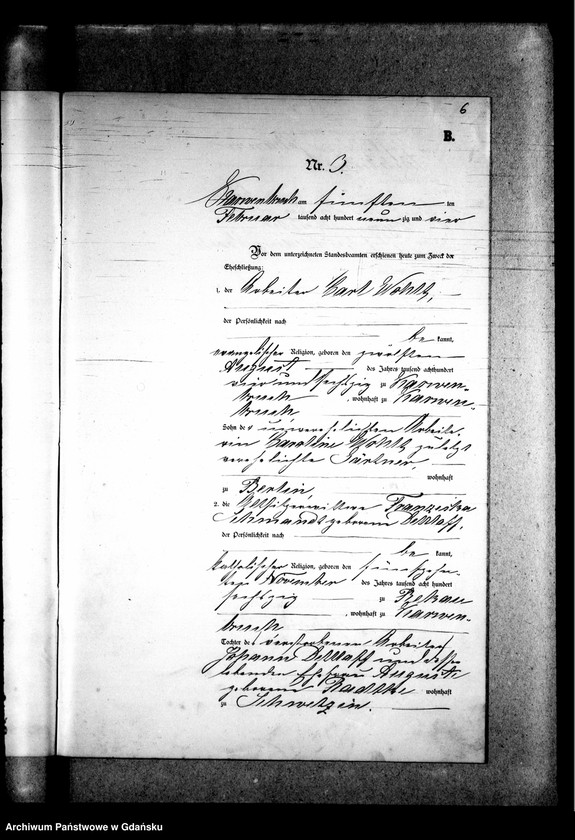 6
B.
Nr. 3.
Karwenbruch am fünften ten
Februar tausend acht hundert neunzig und vier
Vor dem unterzeichneten Standesbeamten erschienen heute zum Zweck der
Eheschließung:
1. der Arbeiter Carl Wohtz,
der Persönlichkeit nach
be kannt,
evangelischer Religion, geboren den zwölften
August des Jahres tausend achthundert
vier und sechzig zu Karwen-
bruch, wohnhaft zu Karwen-
bruch,
Sohn der unverehelichten Arbeite-
rin Caroline Wohtz zuletzt
verehelichte Gärtner,
wohnhaft
zu Berlin,
2. die Franziska
Schmandt geborene
der Persönlichkeit nach
be kannt,
katholischer Religion, geboren den fünfzehn-
ten November des Jahres tausend acht hundert
sechzig zu Rekau
, wohnhaft zu Karwen-
bruch
Tochter des verstorbenen Arbeiters
Johann und dessen
lebenden Ehefrau Auguste
geborene Radtke wohnhaft
zu Schwetzin.
Archiwum Państwowe w Gdańsku